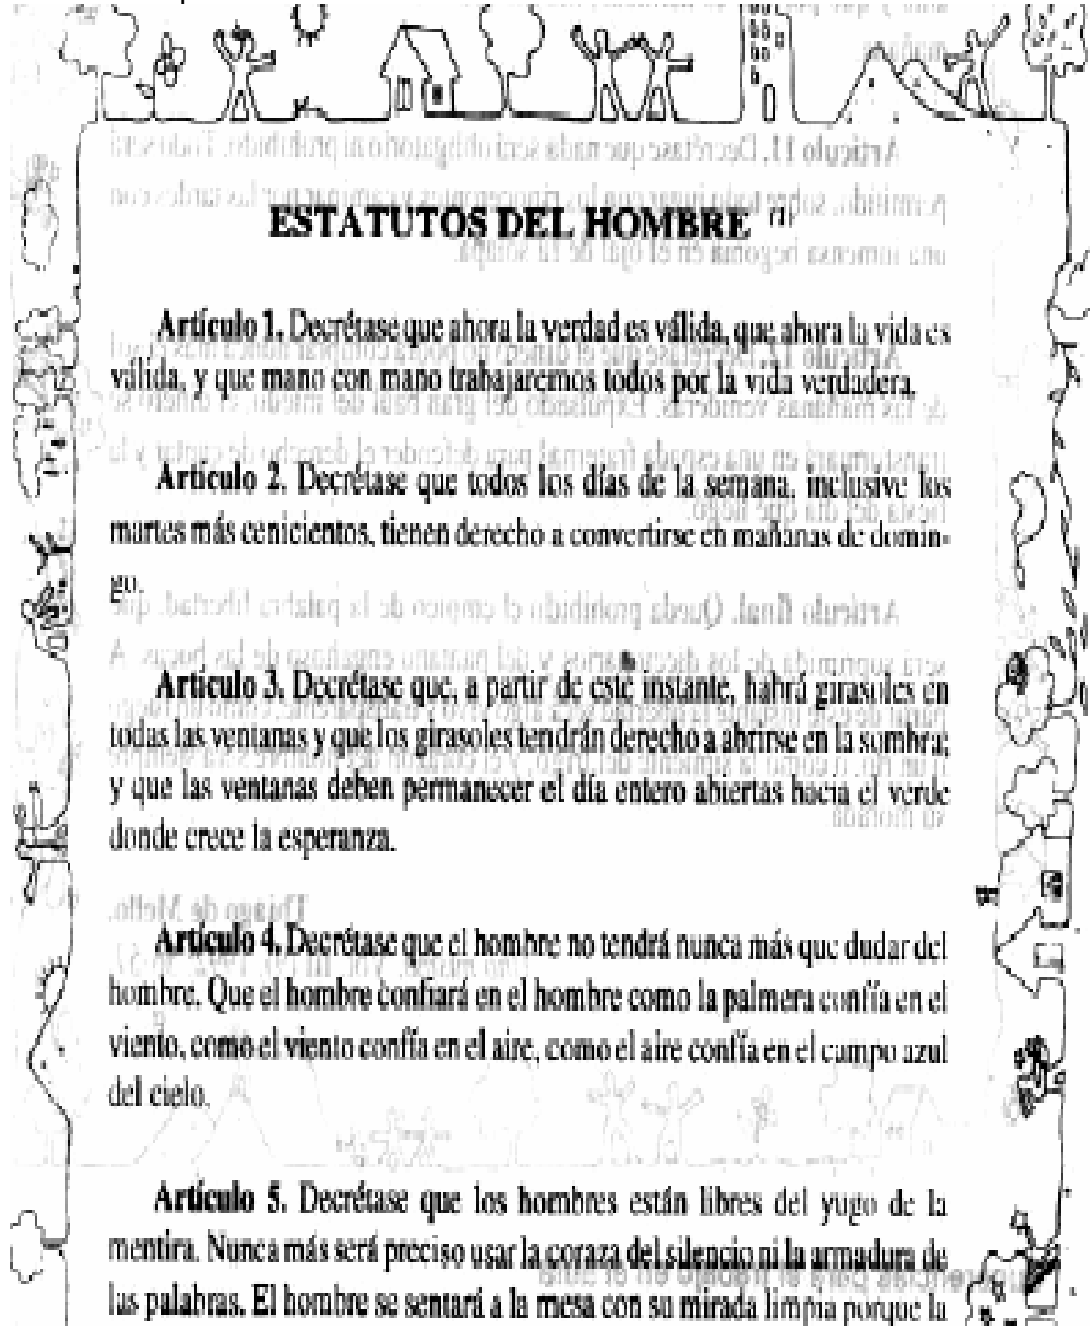 ESTATUTOS DEL HOMBRE (1)
Artículo 1. Decrétase que ahora la verdad es válida, que ahora la vida es
válida, y que mano con mano trabajaremos todos por la vida verdadera.
Artículo 2. Decrétase que todos los días de la semana, inclusive los
martes más cenicientos, tienen derecho a convertirse en mañanas de domin-
go.
Artículo 3. Decrétase que, a partir de este instante, habrá girasoles en
todas las ventanas y que los girasoles tendrán derecho a abrirse en la sombra;
y que las ventanas deben permanecer el día entero abiertas hacia el verde
donde crece la esperanza.
Artículo 4. Decrétase que el hombre no tendrá nunca más que dudar del
hombre. Que el hombre confiará en el hombre como la palmera confía en el
viento, como el viento confía en el aire, como el aire confía en el campo azul
del cielo.
Artículo 5. Decrétase que los hombres están libres del yugo de la
mentira. Nunca más será preciso usar la coraza del silencio ni la armadura de
las palabras. El hombre se sentará a la mesa con su mirada limpia porque la